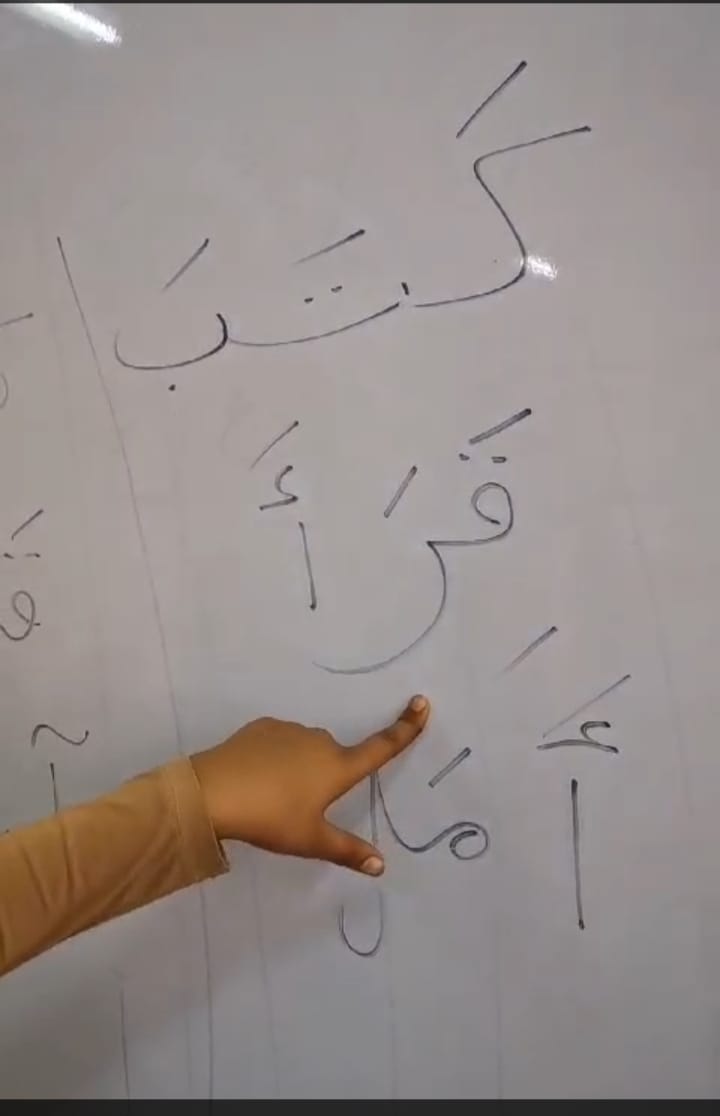 كَتَبَ
قَرَأَ
أَمَل